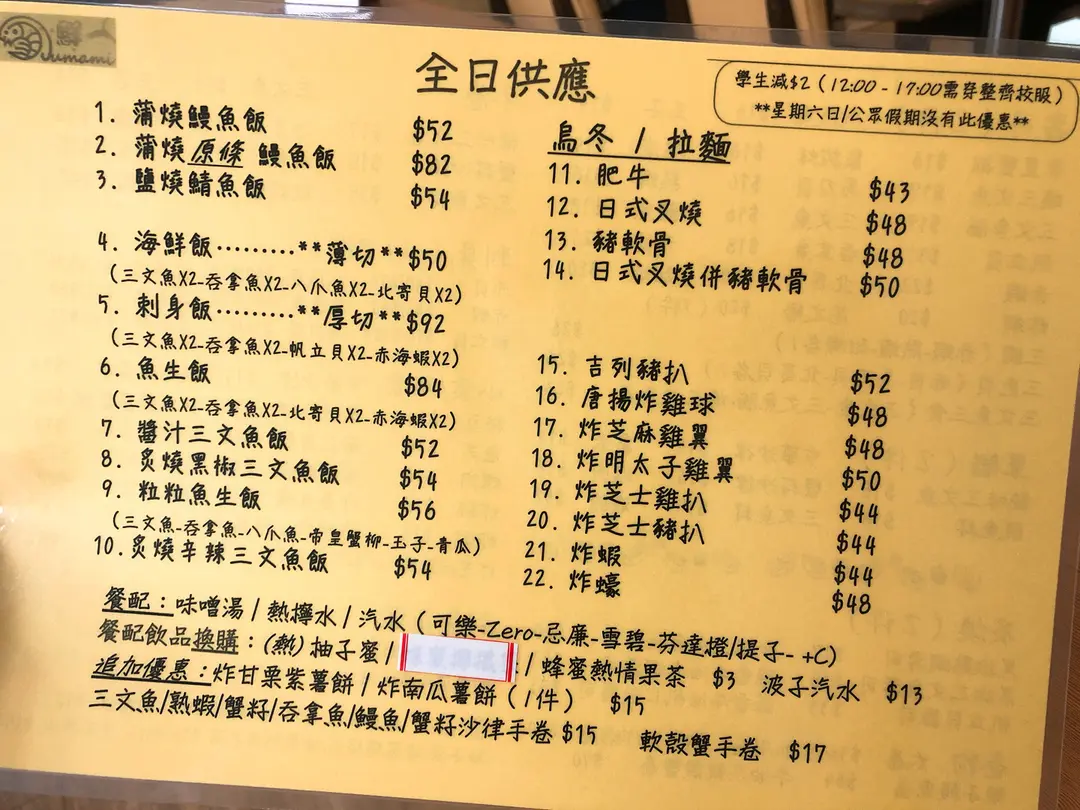 Jumami
全日供應
學生減$2 (12:00 - 17:00需穿整齊校服)
**星期六日/公眾假期沒有此優惠**
1. 蒲燒鰻魚飯 $52
2. 蒲燒原條 鰻魚飯 $82
3. 鹽燒鯖魚飯 $54
4. 海鮮飯.........**薄切**$50
(三文魚X2-吞拿魚X2-八爪魚X2-北寄貝X2)
5. 刺身飯.........**厚切**$92
(三文魚X2-吞拿魚X2-帆立貝X2-赤海蝦X2)
6. 魚生飯 $84
(三文魚X2-吞拿魚X2-北寄貝X2-赤海蝦X2)
7. 醬汁三文魚飯 $52
8. 炙燒黑椒三文魚飯 $54
9. 粒粒魚生飯 $56
(三文魚-吞拿魚-八爪魚-帝皇蟹柳-玉子-青瓜)
10. 炙燒辛辣三文魚飯 $54
烏冬 / 拉麵
11. 肥牛 $43
12. 日式叉燒 $48
13. 豬軟骨 $48
14. 日式叉燒併豬軟骨 $50
15. 吉列豬扒 $52
16. 唐揚炸雞球 $48
17. 炸芝麻雞翼 $48
18. 炸明太子雞翼 $50
19. 炸芝士雞扒 $44
20. 炸芝士豬扒 $44
21. 炸蝦 $44
22. 炸蠔 $48
餐配：味噌湯 / 熱檸水 / 汽水 (可樂-Zero-忌廉-雪碧-芬達橙/提子- +C)
餐配飲品換購：(熱) 抽子蜜 / / 蜂蜜熱情果茶 $3 波子汽水 $13
追加優惠：炸甘栗紫薯餅 / 炸南瓜薯餅 (1件) $15
三文魚/熟蝦/蟹籽/吞拿魚/鰻魚/蟹籽沙律手卷 $15 軟殼蟹手卷 $17